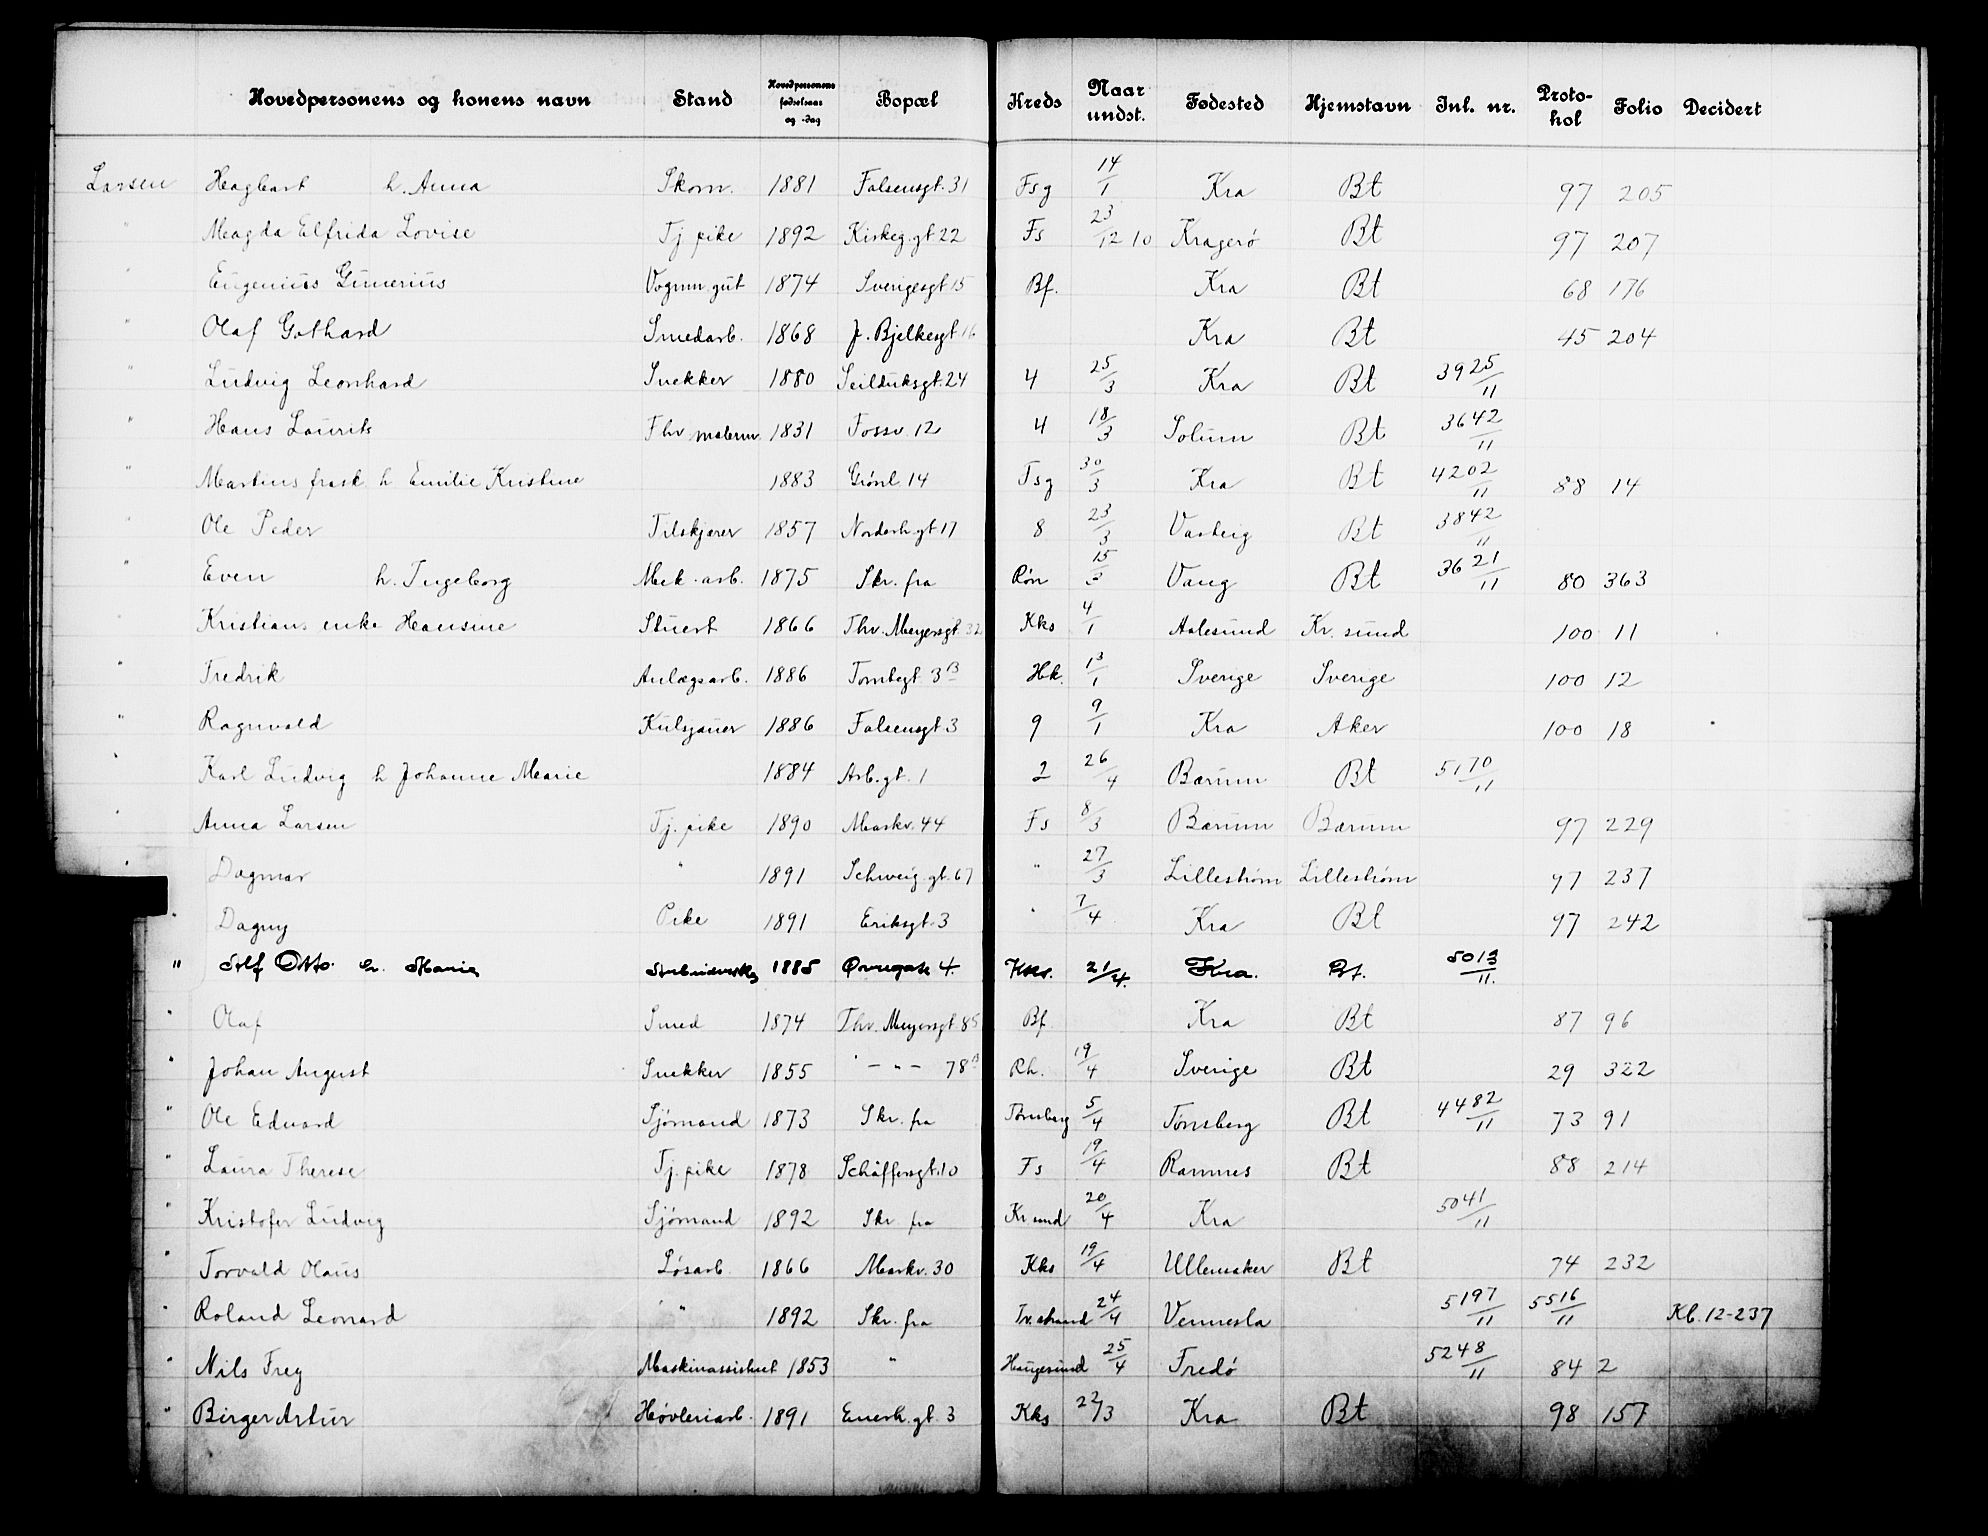 Hovedpersonens og konens navn Stand Hovedpersonens fødselsaar og -dag Bopæl Kreds Naar undst. Fødested Hjemstavn Inl. nr. Proto-kol Folio Decidert
Larsen Hagbart h. Anna Skom. 1881 Falsensgt. 31 Fsg 14/1 Kra Bt 97 205
" Magda Elfrida Lovise Tj. pike 1892 Kirkeg. gt 22 Fs 23/12 10 Kragerø Bt 97 207
" Eugenius Gunerius Vognm. gut 1874 Sverigesgt 15 Bf. Kra Bt 68 176
" Olaf Gothard Smedarb. 1868 J. Bjelkesgt 16 Kra Bt 45 204
" Ludvig Leonhard Snekker 1880 Seilduksgt. 24 4 25/3 Kra Bt 3925/11
" Hans Laurits Fhv. malerm. 1831 Fossv. 12 4 18/3 Solum Bt 3642/11
" Martins frask. h Emilie Kristine 1883 Grønl. 14 Fsg 30/3 Kra Bt 4202/11 88 14
" Ole Peder Tilskjærer 1857 Norderh. gt 17 8 23/3 Varteig Bt 3842/11
" Even h. Ingeborg Mek. arb. 1875 Skr. fra Røn 15/3 Vang Bt 3621/11 80 363
" Kristians enke Hansine Stuert 1866 Thv. Meyersgt 32 Kks 4/1 Aalesund Kr. sund 100 11
" Fredrik Anlægsarb. 1886 Tomtegt. 3 B Hk. 13/1 Sverige Sverige 100 12
" Ragnvald Kulsjauer 1886 Falsensgt. 3 9 9/1 Kra Aker 100 18
" Karl Ludvig h Johanne Marie 1884 Arb. gt. 1 2 26/4 Bærum Bt 5170/11
" Anna Larsen Tj. pike 1890 Markv. 44 Fs 8/3 Bærum Bærum 97 229
" Dagmar " 1891 Schweig. gt. 67 " 27/3 Lillestrøm Lillestrøm 97 237
" Dagny Pike 1891 Eriksgt. 3 " 7/4 Kra Bt 97 242
" Alf Otto h. Marie 1885 4. 21/4. Kra. Bt. 5013/11.
" Olaf Smed 1874 Thv. Meyersgt 85 Bf Kra Bt 87 96
" Johan August Snekker 1855 " — " — 78 B Rh. 19/4 Sverige Bt 29 322
" Ole Edvard Sjømand 1873 Skr. fra Tønsberg 5/4 Tønsberg Bt 4482/11 73 91
" Laura Therese Tj. pike 1878 Schäffersgt. 10 Fs 19/4 Ramnes Bt 88 214
" Kristofer Ludvig Sjømand 1892 Skr. fra Kr sund 20/4 Kra 5041/11
" Torvald Olaus Løsarb. 1866 Markv. 30 Kks 19/4 Ullensaker Bt 74 232
" Roland Leonard " 1892 Skr. fra Tv. strand 24/4 Vennesla 5197/11 5516/11 Kb. 12-237
" Nils Frey Maskinassistent 1853 " Haugesund 25/4 Fredø 5248/11 84 2
" Birger Artur Høvleriarb. 1891 Enerh. gt. 3 Kks 22/3 Kra Bt 98 157